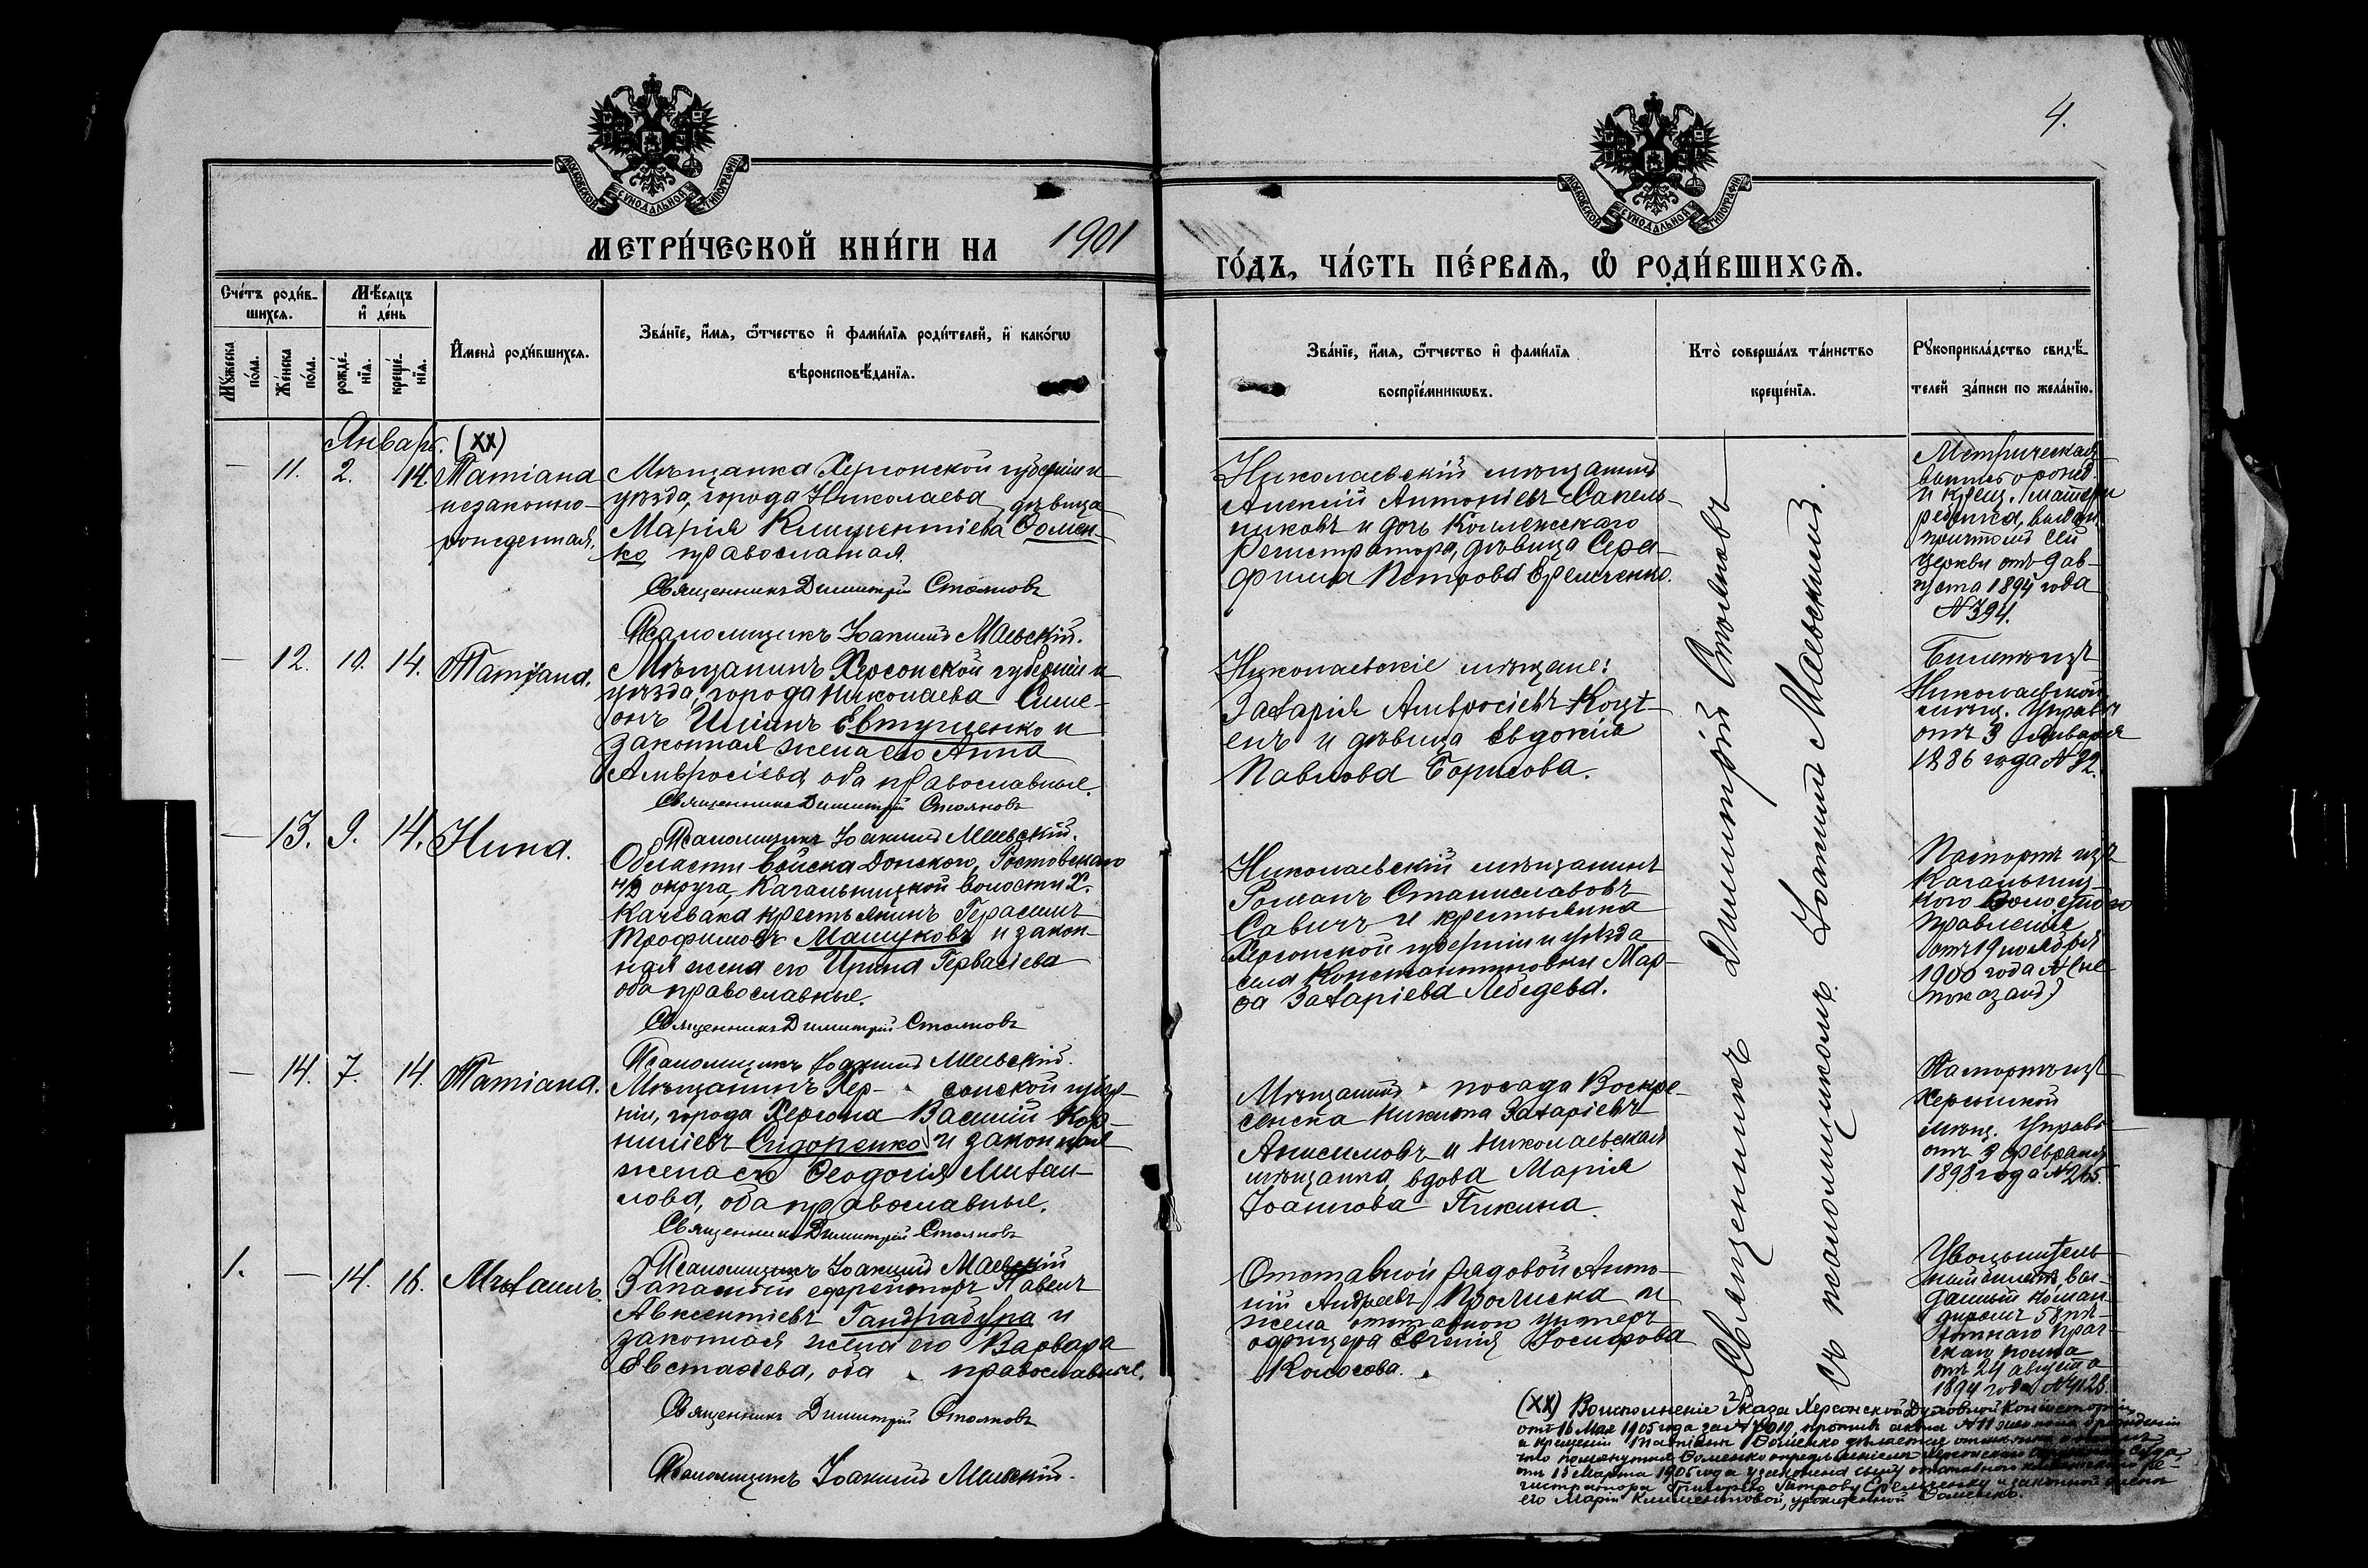 4.
МОСКОВСКОЙ СѴНОДАЛЬНОЙ ТИПОГРАФІИ
МОСКОВСКОЙ СѴНОДАЛЬНОЙ ТИПОГРАФІИ
МЕТРИ́ЧЕСКОЙ КНИ́ГИ НА 1901
ГО́ДЪ, ЧА́СТЬ ПЕ́РВАѦ, Ѡ҆ РОДИ́ВШИХСѦ.
Сче́тъ роди́в-
шихсѧ.
Мꙋ́жеска
по́ла.
Же́нска
по́ла.
Мѣ́сѧцъ
и҆ де́нь
рожде́-
нїѧ.
креще́-
нїѧ.
И҆мена̀ роди́вшихсѧ.
Зва́нїе, и҆́мѧ, ѻ҆́тчество и҆ фами́лїѧ роди́телей, и҆ како́гѡ
вѣроисповѣ́данїѧ.
Зва́нїе, и҆́мѧ, ѻ҆́тчество и҆ фами́лїѧ
воспрїе́мникѡвъ.
Кто̀ соверша́лъ та́инство
креще́нїѧ.
Рꙋкоприкла́дство свидѣ́-
телей за́писи по жела́нїю.
Январь. (XX)
— 11. 2. 14. Татіана
незаконно-
рожденная.
Мѣщанка Херсонской губерніи и
уѣзда, города Николаева, дѣвица
Марія Климентіева Фомен-
ко православная.
Священникъ Димитрій Стояновъ
Псаломщикъ Іоакимъ Маевскій.
Николаевскій мѣщанинъ
Алексій Антоніевъ Сапель-
никовъ и дочь Коллежскаго
Регистратора, дѣвица Сера-
фима Петрова Еременко.
Метрическая
выпись о рожд.
и крещ. матери
ребенка, выдан.
причтомъ сей
церкви отъ 9 ав-
густа 1894 года
№ 394.
— 12. 10. 14. Татіана.
Мѣщанинъ Херсонской губерніи и
уѣзда, города Николаева Симе-
онъ Иліинъ Евтушенко и
законная жена его Анна
Амвросіева, оба православные.
Священникъ Димитрій Стояновъ
Псаломщикъ Іоакимъ Маевскій.
Николаевскіе мѣщане:
Захарія Амвросіевъ
и дѣвица Евдокія
Павлова Борисова.
Билетъ изъ
Николаевской
мѣщ. Управы
отъ 3 Января
1886 года № 32.
— 13. 9. 14. Нина.
Области Войска Донского, Ростовскаго
н/Д округа, Кагальницкой волости Х.
Качевана крестьянинъ Герасимъ
Трофимовъ Машуковъ и закон-
ная жена его Ирина Гервасіева
оба православные.
Священникъ Димитрій Стояновъ
Псаломщикъ Іоакимъ Маевскій.
Николаевскій мѣщанинъ
Романъ Станиславовъ
Савичъ и крестьянка
Херсонской губерніи и уѣзда
села Константиновки Мар-
ѳа Захаріева Лебедева.
Паспортъ изъ
Кагальниц-
кого Волостного
Правленія
отъ 19 ноября
1900 года № (не
показанъ)
— 14. 7. 14. Татіана.
Мѣщанинъ Хер- сонской губер-
ніи, города Херсона Василій Кор-
ниліевъ Сидоренко и законная
жена его Ѳеодосія Михаи-
лова, оба православные.
Священникъ Димитрій Стояновъ
Псаломщикъ Іоакимъ Маевскій
Мѣщанинъ посада Воскре-
сенска Никита Захаріевъ
Анисимовъ и Николаевская
мѣщанка, вдова Марія
Іоаннова Пикина.
Паспортъ изъ
Херсонской
мѣщ. Управы
отъ 3 февраля
1898 года № 265.
1. — 14. 16. Михаилъ.
Запасный ефрейторъ Павелъ
Авксентіевъ Гандрабура и
законная жена его Варвара
Евстафіева, оба православные.
Священникъ Димитрій Стояновъ
Псаломщикъ Іоакимъ Маевскій.
Отставной рядовой Анто-
ній Андреевъ Пролиска и
жена отставного унтеръ
офицера Евгенія Іосифова
Колосова.
Увольнитель-
ный билетъ, вы-
данный коман-
диромъ 58 пѣ-
хотнаго Праг-
скаго полка
отъ 24 августа
1894 года № 4128.
Священникъ Димитрій Стояновъ
Съ псаломщикомъ Іоакимъ Маевскимъ.
(XX) Во исполненіе Указа Херсонской Духовной Консисторіи,
отъ 16 Мая 1905 года за № противъ акта № 11 о рожденіи
и крещеніи Татіаны Фоменко дѣлается отмѣтка
что помянутая Фоменко опредѣленіемъ Херсонскаго Окружнаго Суда
отъ 15 Марта 1905 года узаконена отставного ре-
гистратора Григорію Петрову Еременку и законной женѣ
его Маріи Климентовой, урожденной Фоменко.